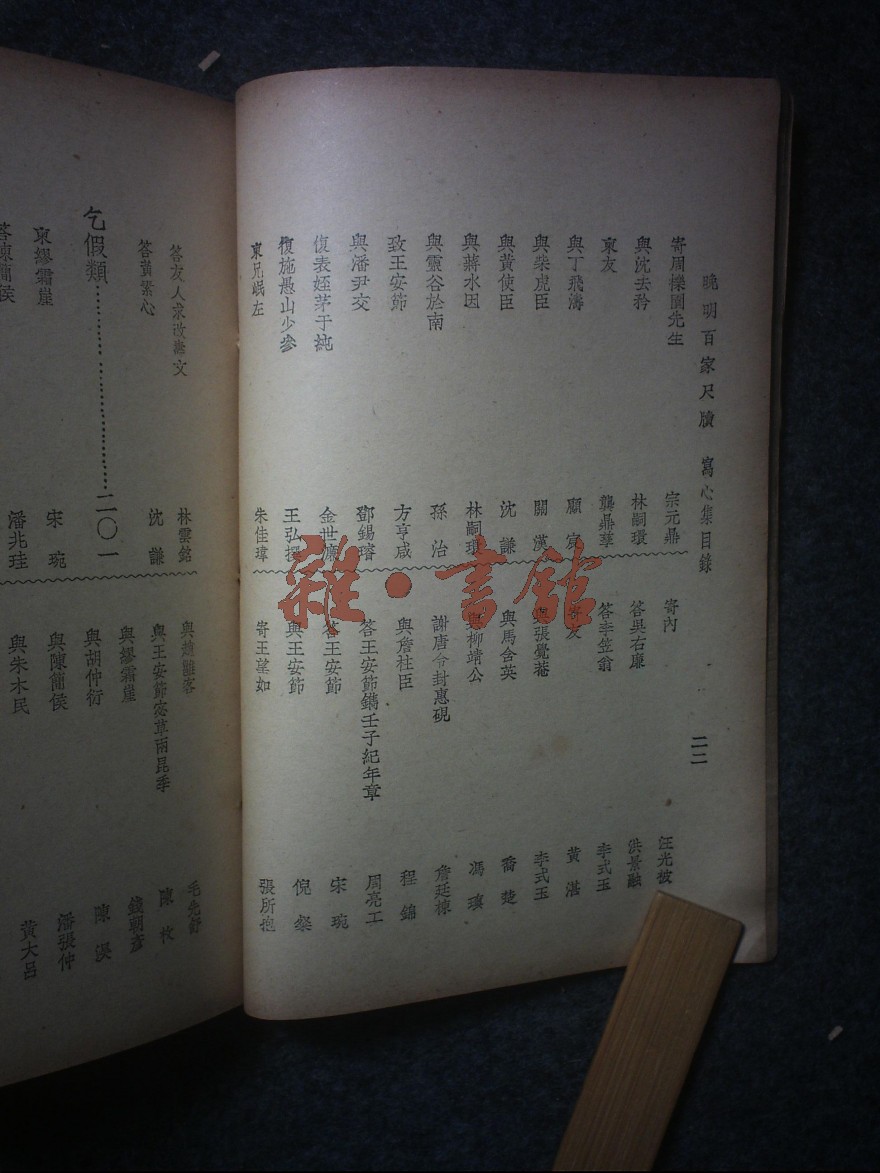 晚明百家尺牘 寫心集目錄
二二
寄周櫟園先生 宗元鼎
與沈去矜 林嗣環
柬友 龔鼎孳
與丁飛濤 顧
與柴虎臣 關漢
與黃使臣 沈謙
與蔣水因 林嗣環
與靈谷於南 孫治
致王安節 方亨咸
與潘尹交 鄧錫璿
復表姪茅于純 金世
復施愚山少參 王弘撰
柬兄岷左 朱佳瑋
寄內 汪光被
答吳右廉 洪景融
答李笠翁 李式玉
寄友 黃湛
張覺菴 李式玉
與馬含英 喬楚
與柳靖公 馮
謝唐令封惠硯 詹廷棟
與詹柱臣 程錦
答王安節鐫壬子紀年章 周亮工
答王安節 宋琬
與王安節 倪粲
寄王望如 張所抱
答友人求改葬文 林雲銘
答黃紫心 沈謙
乞假類 二〇一
柬繆霜崖 宋琬
答陳簡侯 潘兆珪
毛先舒
與王安節宓草兩昆季 陳枚
與繆霜崖 錢朝彥
與胡仲衍 陳
與陳簡侯 潘張仲
與朱木民 黃大呂
雜·書館